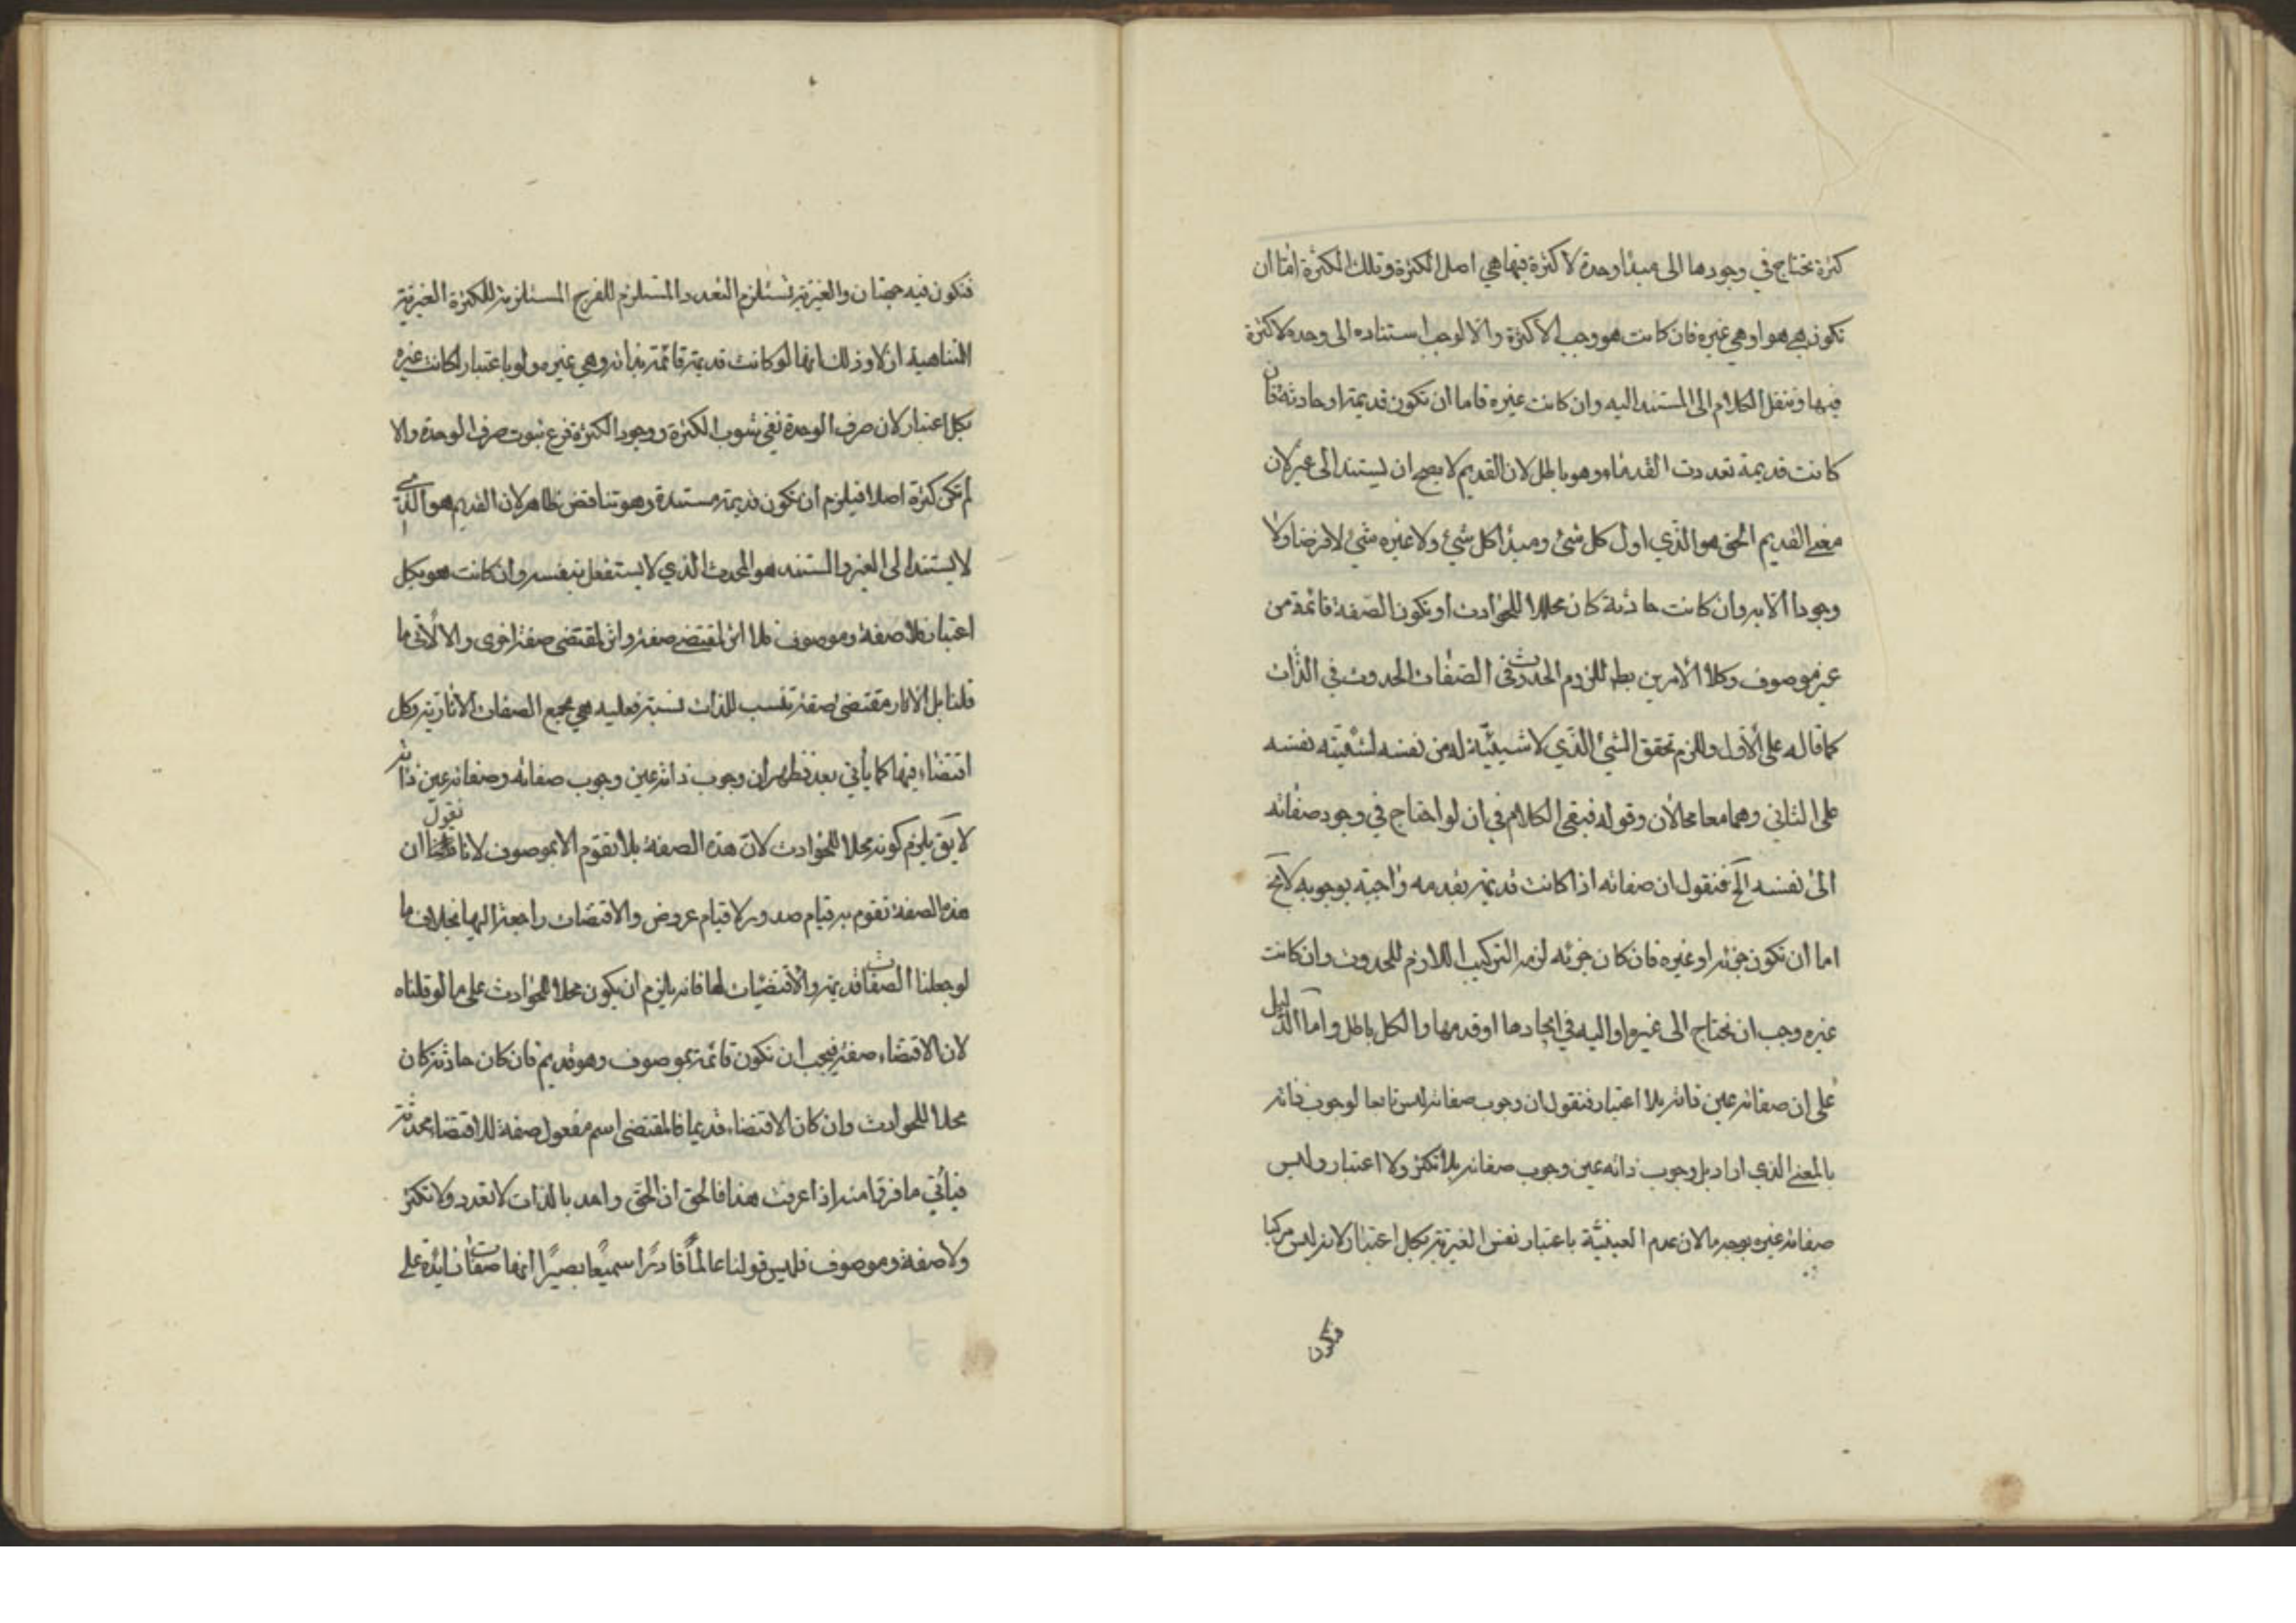 كثرة تحتاج في وجودها الى مبدا وحدة لا كثرة فيها هي اصل الكثرة وتلك الكثرة امّا ان
تكون هي هو او هي غيره فان كانت هو وجب الا كثرة والا لوجب استناده الى وحدة لا كثرة
فيها وننقل الكلام الى المستند اليه وان كانت غيره فاما ان تكون قديمة او حادثة فان
كانت قديمة تعددت القدماء وهو باطل لان القديم لا يصح ان يستند الى غير لان
معنى القديم الحق هو الذي اول كل شئ ومبدأ كل شيء ولا غيره شئ لا فرضا ولا
وجودا الا به وان كانت حادثة كان محلا للحوادث او تكون الصّفة قائمة من
غير موصوف وكلا الأمرين بط للزوم الحدوث في الصّفات الحدوث في الذّات
كما قاله على الأول وللزم تحقق الشئ الذّي لا شيئيّة له من نفسه لشيئيته نفسه
على الثاني وهما معا محالان وقوله فبقى الكلام في ان لو احتاج في وجود صفاته
الى نفسه الخ فنقول ان صفاته اذا كانت قديمة بقدمه واجبة بوجوبه لا يخ
اما ان تكون جزئه او غيره فان كان جزئه لزمه التركيب اللازم للحدوث وان كانت
غيره وجب ان تحتاج الى غيره او اليه في ايجادها او قدمها والكل باطل وامّا الدّليل
على ان صفاته عين ذاته بلا اعتبار فنقول ان وجوب صفاته ليس تابعا لوجوب ذاته
بالمعنى الذي اراد بل وجوب ذاته عين وجوب صفاته بلا تكثر ولا اعتبار وليس
صفاته غيره بوجه ما لان عدم العينيّة باعتبار نفس الغيريّة بكل اعتبار لانه ليس مركبا
فتكون
فتكون فيه جهتان والغيرية تستلزم التعدد المستلزم للفرج المستلزمة للكثرة الغيرية
المتناهية ازلا وذلك انها لو كانت قديمة قائمة بذاته وهي غيره ولو باعتبار لكانت غيره
بكل اعتبار لان صرف الوحدة نفي شوب الكثرة ووجود الكثرة فرع ثبوت صرف الوحدة والا
لم تكن كثرة اصلا فيلزم ان تكون قديمة مستندة وهو تناقض ظاهر لان القديم هو الذي
لا يستند الى الغير والمستند هو المحدث الذي لا يستقل بنفسه وان كانت هو بكل
اعتبار فلا صفة وموصوف فلا اثر لمقتضى صفة واثر لمقتضى صفة اخرى والا لاتى ما
قلنا بل الاثار مقتضى صفة تنسب للذات نسبة فعليه هي مجمع الصفات الاثارية وكل
اقتضاء فيها كما يأتي بعد فظهر ان وجوب ذاته عين وجوب صفاته وصفاته عين ذاته
لا يقَ يلزم كونه محلا للحوادث لان هذه الصفة بلا تقوم الا بموصوف لانا نقول ان
هذه الصفة تقوم به قيام صدور لا قيام عروض والاقتضات راجعة اليها بخلاف ما
لو جعلنا الصفات قديمة والأقتضيات لها فانه يلزم ان يكون محلا للحوادث على ما لو قلناه
لان الاقتضاء صفة فيجب ان تكون قائمة بموصوف وهو قديم فان كان حادثة كان
محلا للحوادث وان كان الاقتضاء قديما فالمقتضى اسم مفعول صفة للاقتضاء محدثة
فيأتي ما فرّ منه اذا عرفت هذا فالحق ان الحق واحد بالذات لا تعدد ولا تكثر
ولا صفة وموصوف فليس قولنا عالمًا قادرًا سميعًا بصيرًا انها صفات زايدة على